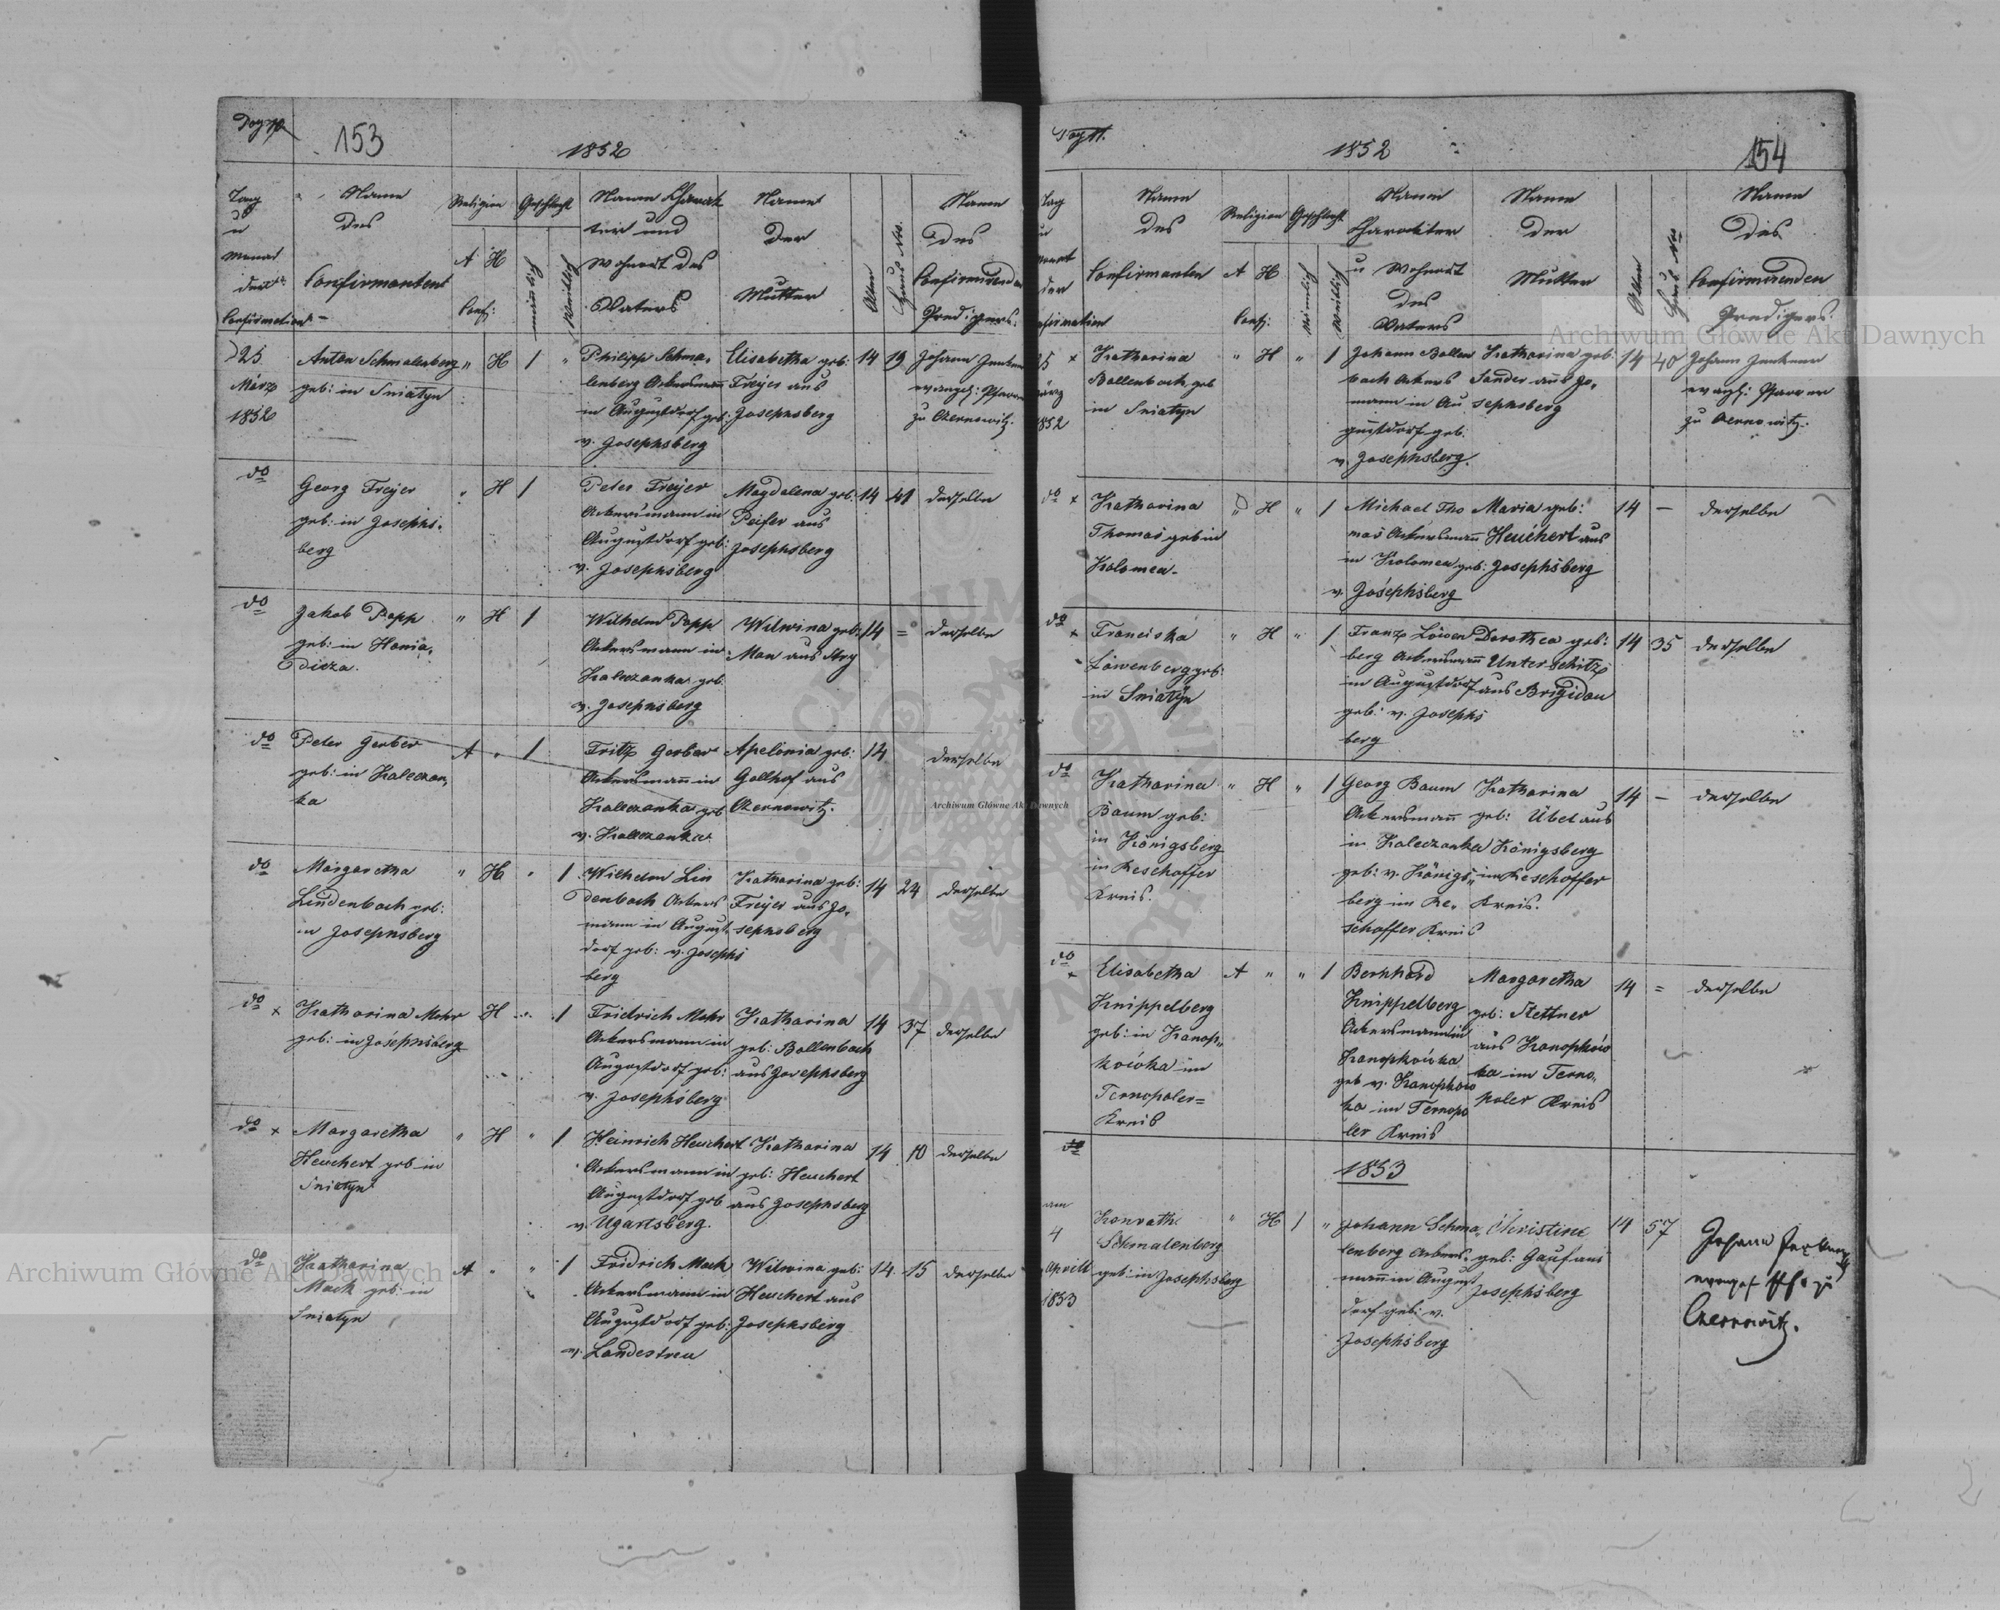 Pag 10.
153
1852
Tag
u
Monat
der
Confirmation
Name
des
Confirmanten
Religion
A H
Conf:
Geschlecht
männlich
weiblich
Namen Charak
ter und
Wohnort des
Vaters
Name
der
Mutter
Alter
Haus Nro.
Name
des
Confirmirenden
Predigers.
d 25
März
1852
Anton Schmalenberg
geb: in Sniatyn
" H 1 "
Philipp Schma,
lenberg Ackersmann
in Augustdorf geb:
v. Josephsberg
Elisabetha geb:
Freyer aus
Josephsberg
14 19
Johann
evangl: Pfarrer
zu Czernowitz.
do
Georg Freyer
geb: in Josephs,
berg
" H 1
Peter Freyer
Ackersmann in
Augustdorf geb:
v. Josephsberg
Magdalena geb:
Peifer aus
Josephsberg
14 41 derselbe
do
Jakob Popp
geb: in Hania,
dicza.
" H 1
Wilhelm Popp
Ackersmann in
Kaleczanka geb.
v. Josephsberg
Wilwina geb:
Man aus Stry
14 = derselbe
do
Peter Gerber
geb: in Kaleczan,
ka
A " 1
Fritz Gerber
Ackersmann in
Kaleczanka geb
v. Kaleczanka
Apelonia geb:
Gollhof aus
Czernowitz.
14 derselbe
do
Margaretha
Lindenbach geb:
in Josephsberg
" H " 1
Wilhelm Lin
denbach Ackers
mann in August,
dorf geb: v. Josephs
berg
Katharina geb:
Freyer aus Jo,
sephsberg
14 24 derselbe
do x
Katharina Mohr
geb: in Josephsberg
H " 1
Fridrich Mohr
Ackersmann in
Augustdorf geb:
v. Josephsberg
Katharina
geb: Bollenbach
aus Josephsberg
14 37 derselbe
do x
Margaretha
Heuchert geb in
Sniatyn
" H " 1
Heinrich Heuchert
Ackersmann in
Augustdorf geb
v. Ugartsberg.
Katharina
geb: Heuchert
aus Josephsberg
14 10 derselbe
do
Katharina
Mack geb: in
Sniatyn
A " " 1
Fridrich Mack
Ackersmann in
Augustdorf geb:
v. Landestreu
Wilwina geb:
Heuchert aus
Josephsberg
14 15 derselbe
Pag 11.
1852
154
Tag
u
Monat
der
Confirmation
Name
des
Confirmanten
Religion
A H
Conf:
Geschlecht
männlich
weiblich
Namen
Charackter
u Wohnort
des
Vaters
Name
der
Mutter
Alter
Haus Nro
Name
des
Confirmirenden
Predigers.
25 x
März
1852
Katharina
Bollenbach geb
in Sniatyn
" H " 1
Johann Bollen
bach Ackers
mann in Au
gustdorf geb.
v. Josephsberg.
Katharina geb:
Sander aus Jo,
sephsberg
14 40
Johann
evangl: Pfarrer
zu Czernowitz.
do x
Katharina
Thomas geb in
Kolomea.
" H " 1
Michael Tho
mas Ackersmann
in Kolomea geb:
v. Josephsberg
Maria geb:
Heuchert aus
Josephsberg
14 — derselbe
do x
Franciska
Löwenberg geb:
in Sniatyn
" H " 1
Franz Löwen
berg Ackersmann
in Augustdorf
geb: v. Josephs
berg
Dorothea geb:
Unterschitz
aus Brigidau
14 35 derselbe
do
Katharina
Baum geb:
in Königsberg
in Reschoffer
Kreis.
" H " 1
Georg Baum
Ackersmann
in Kaleczanka
geb: v. Königs,
berg im Re,
schoffer Kreis
Katharina
geb: Übel aus
Königsberg
im Reschoffer
Kreis.
14 — derselbe
do x
Elisabetha
Knippelberg
geb: in Kanop,
kowka im
Ternopoler=
Kreis
A " " 1
Bernhard
Knippelberg
Ackersmann in
Kanopkowka
geb v. Kanopkow
ka im Ternopo
ler Kreis
Margaretha
geb: Kettner
aus Kanopkow
ka im Terno,
poler Kreis
14 = derselbe
do
1853
am
4
Aprill
1853
Konrath
Schmalenberg
geb: in Josephsberg
" H 1 "
Johann Schma,
lenberg Ackers,
mann in August
dorf geb: v.
Josephsberg
Christine
geb: Gauf aus
Josephsberg
14 57
Johann
Czernowitz.
Archiwum Główne Akt Dawnych
Archiwum Główne Akt Dawnych
Archiwum Główne Akt Dawnych